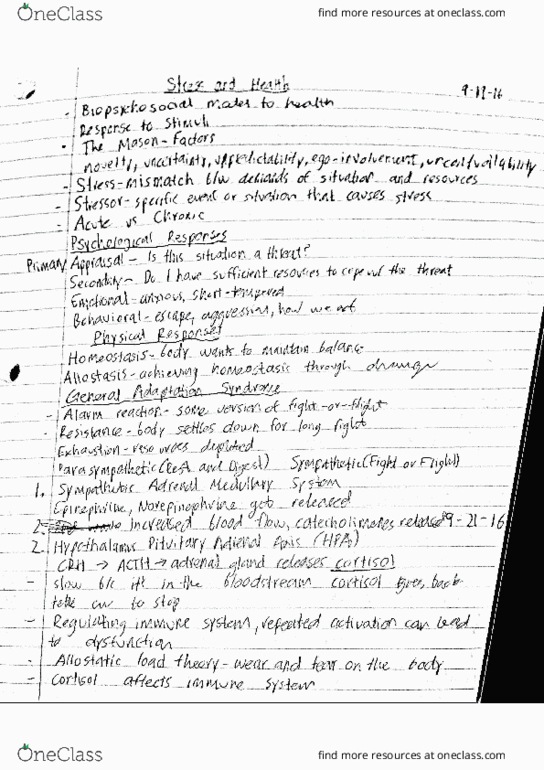 OneClass
find more resources at oneclass.com
Stress and Health
9-19-16
- Biopsychosocial model to health
Response to stimuli
- The Mason-Factors
novelty, uncertainty, unpredictability, ego-involvement, uncontrollability
- Stress-mismatch b/w demands of situation and resources
- Stressor-specific event or situation that causes stress
- Acute vs Chronic
Psychological Responses
Primary Appraisal- Is this situation a threat?
Secondary- Do I have sufficient resources to cope w/ the threat
Emotional-anxious, short-tempered
Behavioral-escape, aggression, how we act
Physical Responses
Homeostasis-body wants to maintain balance
Allostasis-achieving homeostasis through change
General Adaptation Syndrome
- Alarm reaction- some version of fight-or-flight
Resistance-body settles down for long fight
Exhaustion-resources depleted
Parasympathetic(Rest and Digest) Sympathetic(Fight or Flight)
1. Sympathetic Adrenal Medullary System
Epinephrine, Norepinephrine get released
2. Increased blood flow, catecholimines released 9-21-16
2. Hypothalamus Pituitary Adrenal Axis (HPA)
CRH → ACTH → adrenal gland releases cortisol
- slow b/c it's in the bloodstream cortisol goes back
to stop
- Regulating immune system, repeated activation can lead
to dysfunction
- Allostatic load theory-wear and tear on the body
- Cortisol affects immune system
OneClass
find more resources at oneclass.com